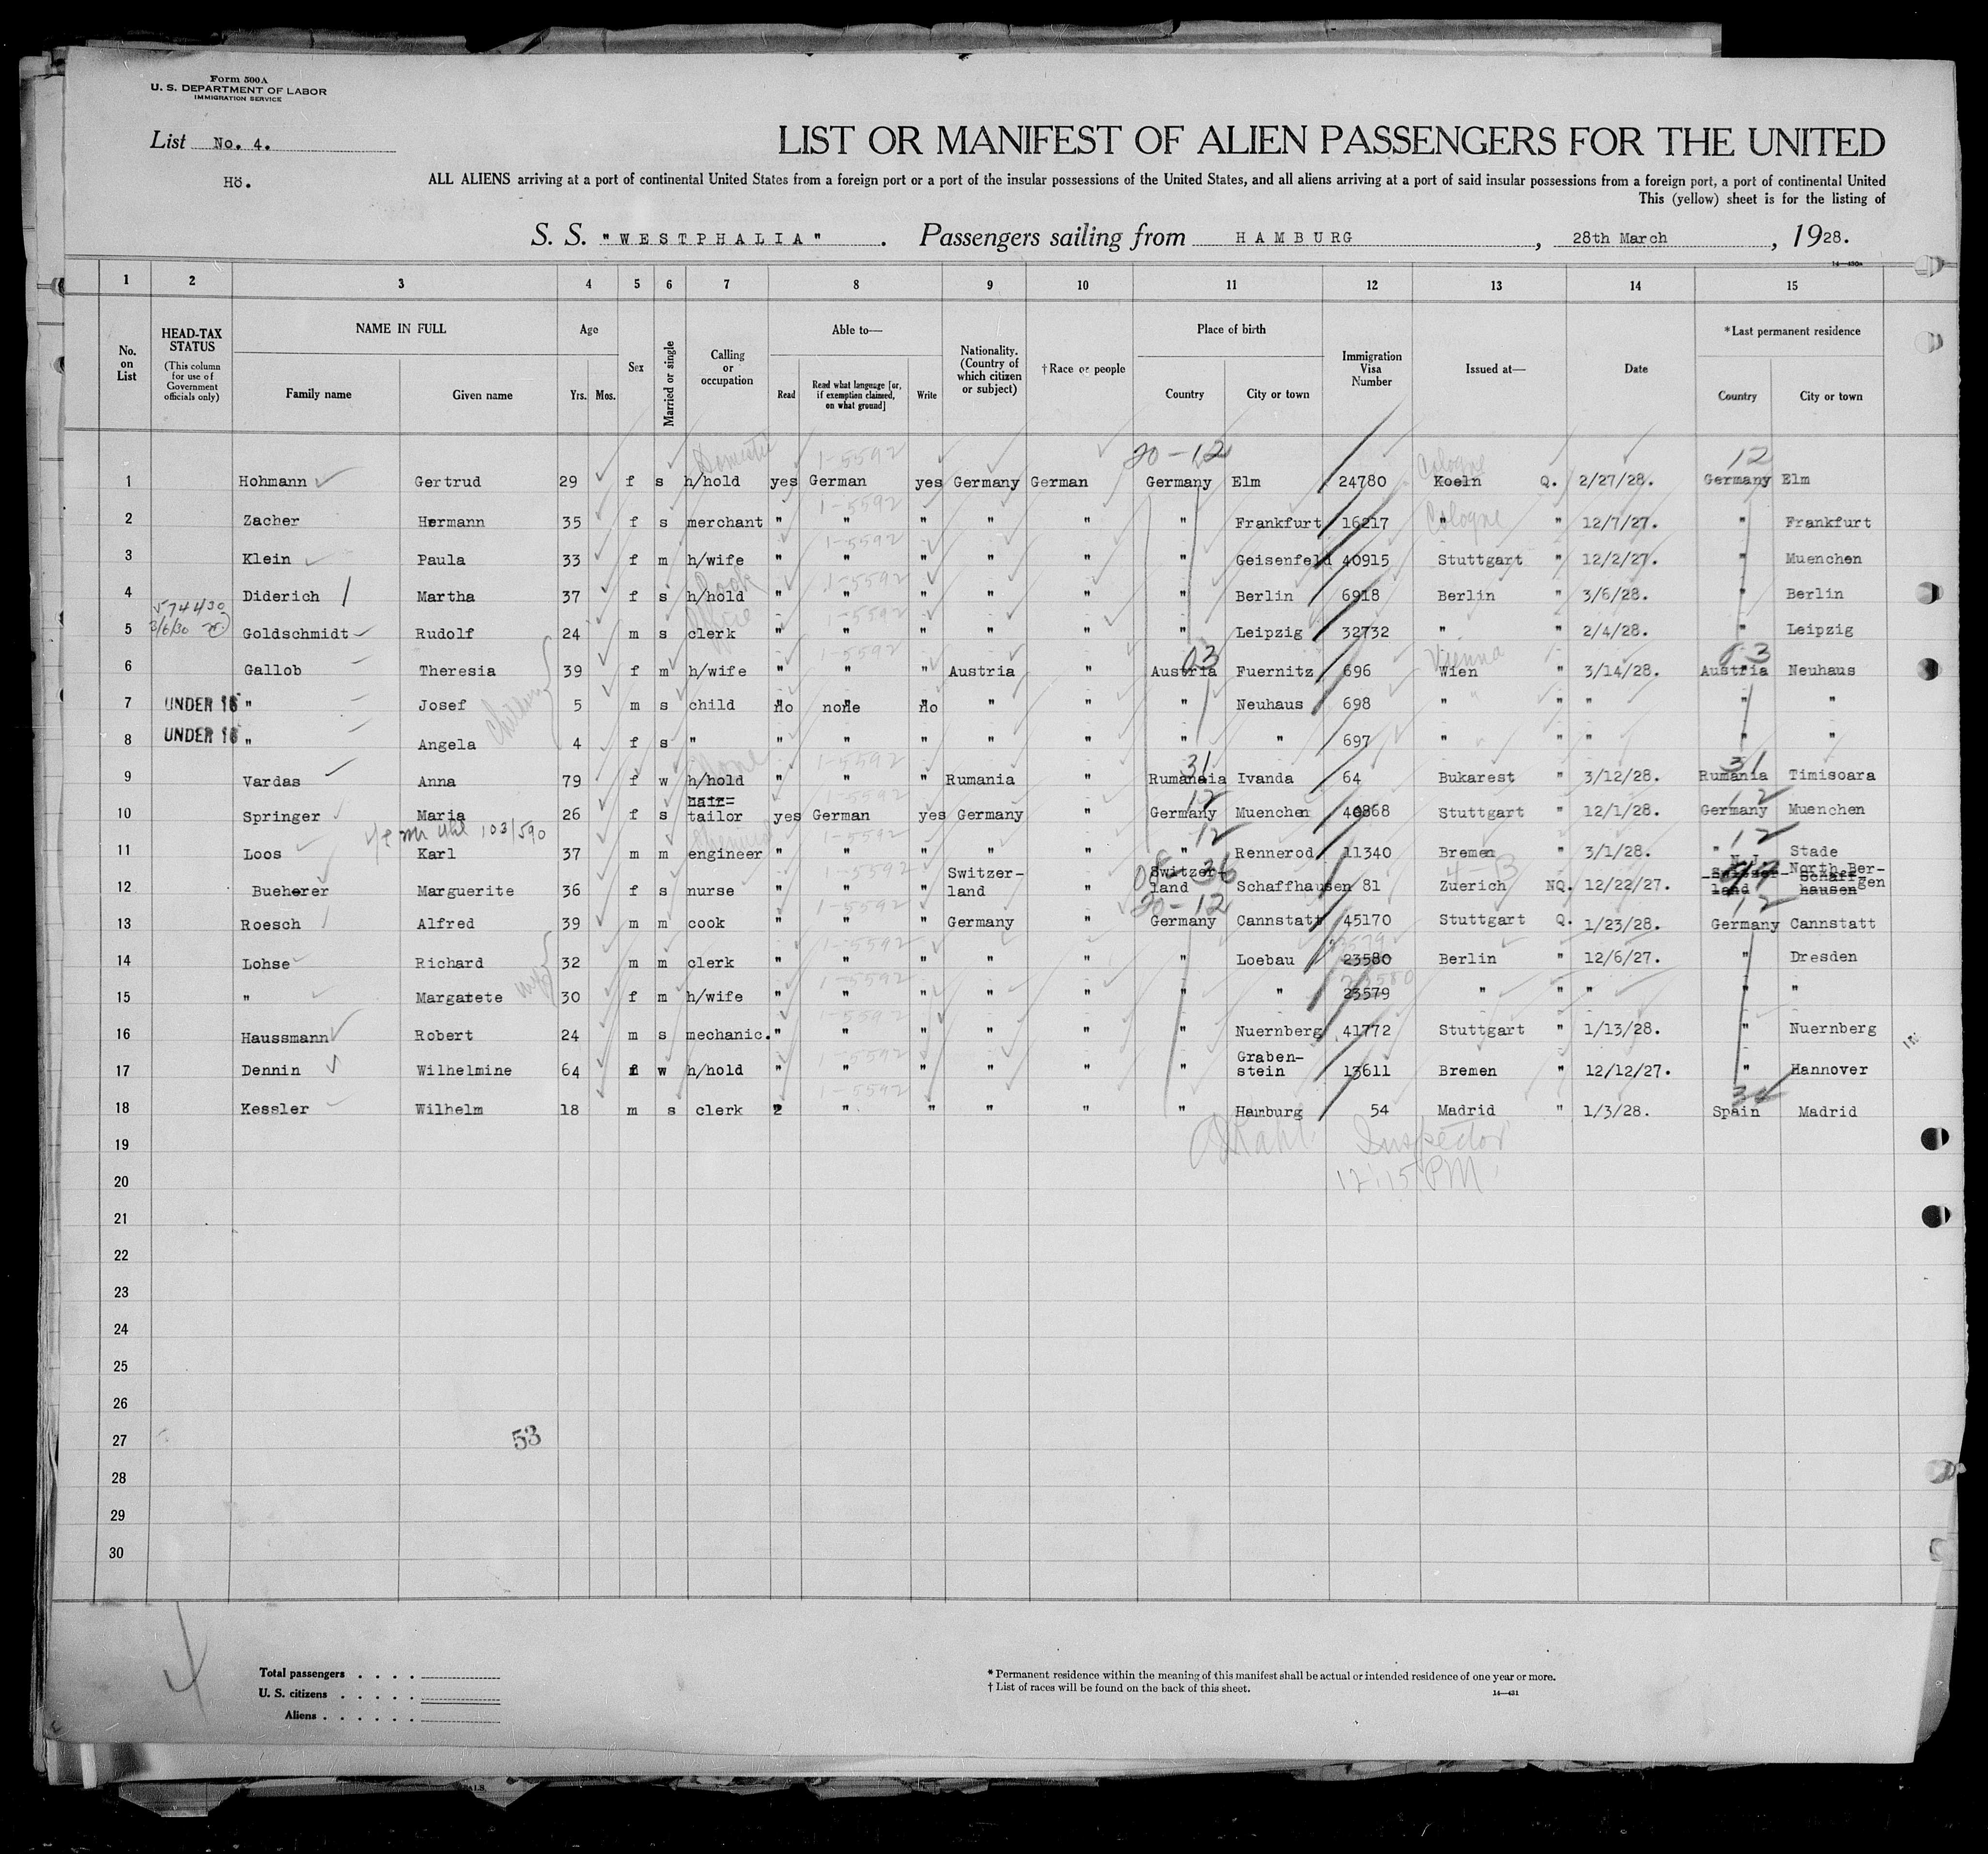 Form 500A
U. S. DEPARTMENT OF LABOR
IMMIGRATION SERVICE
List No. 4.
Hö.
LIST OR MANIFEST OF ALIEN PASSENGERS FOR THE UNITED
ALL ALIENS arriving at a port of continental United States from a foreign port or a port of the insular possessions of the United States, and all aliens arriving at a port of said insular possessions from a foreign port, a port of continental United
This (yellow) sheet is for the listing of
S. S. "WESTPHALIA" . Passengers sailing from HAMBURG , 28th March , 1928.
14—430a
1 2 3 4 5 6 7 8 9 10 11 12 13 14 15
No. on List
HEAD-TAX STATUS
(This column for use of Government officials only)
NAME IN FULL
Family name Given name
Age
Yrs. Mos.
Sex
Married or single
Calling or occupation
Able to—
Read
Read what language [or, if exemption claimed, on what ground]
Write
Nationality. (Country of which citizen or subject)
†Race or people
Place of birth
Country City or town
Immigration Visa Number
Issued at—
Date
*Last permanent residence
Country City or town
Domestic 1-5592 20-12 Cologne 12
1 Hohmann Gertrud 29 f s h/hold yes German yes Germany German Germany Elm 24780 Koeln Q. 2/27/28. Germany Elm
1-5592 Cologne
2 Zacher Hermann 35 f s merchant " " " " " " Frankfurt 16217 " " 12/7/27. " Frankfurt
1-5592
3 Klein Paula 33 f m h/wife " " " " " " Geisenfeld 40915 Stuttgart " 12/2/27. " Muenchen
Cook 1-5592
4 Diderich Martha 37 f s h/hold " " " " " " Berlin 6918 Berlin " 3/6/28. " Berlin
574430
3/6/30
Office 1-5592
5 Goldschmidt Rudolf 24 m s clerk " " " " " " Leipzig 32732 " " 2/4/28. " Leipzig
1-5592 03 Vienna 03
6 Gallob Theresia 39 f m h/wife " " " Austria " Austria Fuernitz 696 Wien 3/14/28. Austria Neuhaus
children
7 UNDER 16 " Josef 5 m s child no none no " " " Neuhaus 698 " " " " "
8 UNDER 16 " Angela 4 f s " " " " " " " " 697 " " " " "
None 1-5592 31 31
9 Vardas Anna 79 f w h/hold " " " Rumania " Rumanaia Ivanda 64 Bukarest " 3/12/28. Rumania Timisoara
hair=
1-5592 12 12
10 Springer Maria 26 f s tailor yes German yes Germany " Germany Muenchen 40868 Stuttgart " 12/1/28. Germany Muenchen
103/590
Chemical 1-5592 12 12
11 Loos Karl 37 m m engineer " " " " " " Rennerod 11340 Bremen " 3/1/28. " Stade
1-5592 08-36 4-B N.J. North Ber-gen
12 Bueherer Marguerite 36 f s nurse " " " Switzer-land " Switzer-land Schaffhausen 81 Zuerich NQ. 12/22/27. Switzer-land Schaff-hausen
1-5592 20-12 12
13 Roesch Alfred 39 m m cook " " " Germany " Germany Cannstatt 45170 Stuttgart Q. 1/23/28. Germany Cannstatt
1-5592 23579
14 Lohse Richard 32 m m clerk " " " " " " Loebau 23580 Berlin " 12/6/27. " Dresden
wife 1-5592 23580
15 " Margatete 30 f m h/wife " " " " " " " 23579 " " " " "
1-5592
16 Haussmann Robert 24 m s mechanic. " " " " " " Nuernberg 41772 Stuttgart " 1/13/28. " Nuernberg
1-5592
17 Dennin Wilhelmine 64 f w h/hold " " " " " " Graben-stein 13611 Bremen " 12/12/27. " Hannover
1-5592
18 Kessler Wilhelm 18 m s clerk " " " " " " Hamburg 54 Madrid " 1/3/28. Spain Madrid
19
Inspector
20
12:15 PM
21
22
23
24
25
26
27
53
28
29
30
4
Total passengers . . . .
U. S. citizens . . . . .
Aliens . . . . . .
* Permanent residence within the meaning of this manifest shall be actual or intended residence of one year or more.
† List of races will be found on the back of this sheet.
14—431